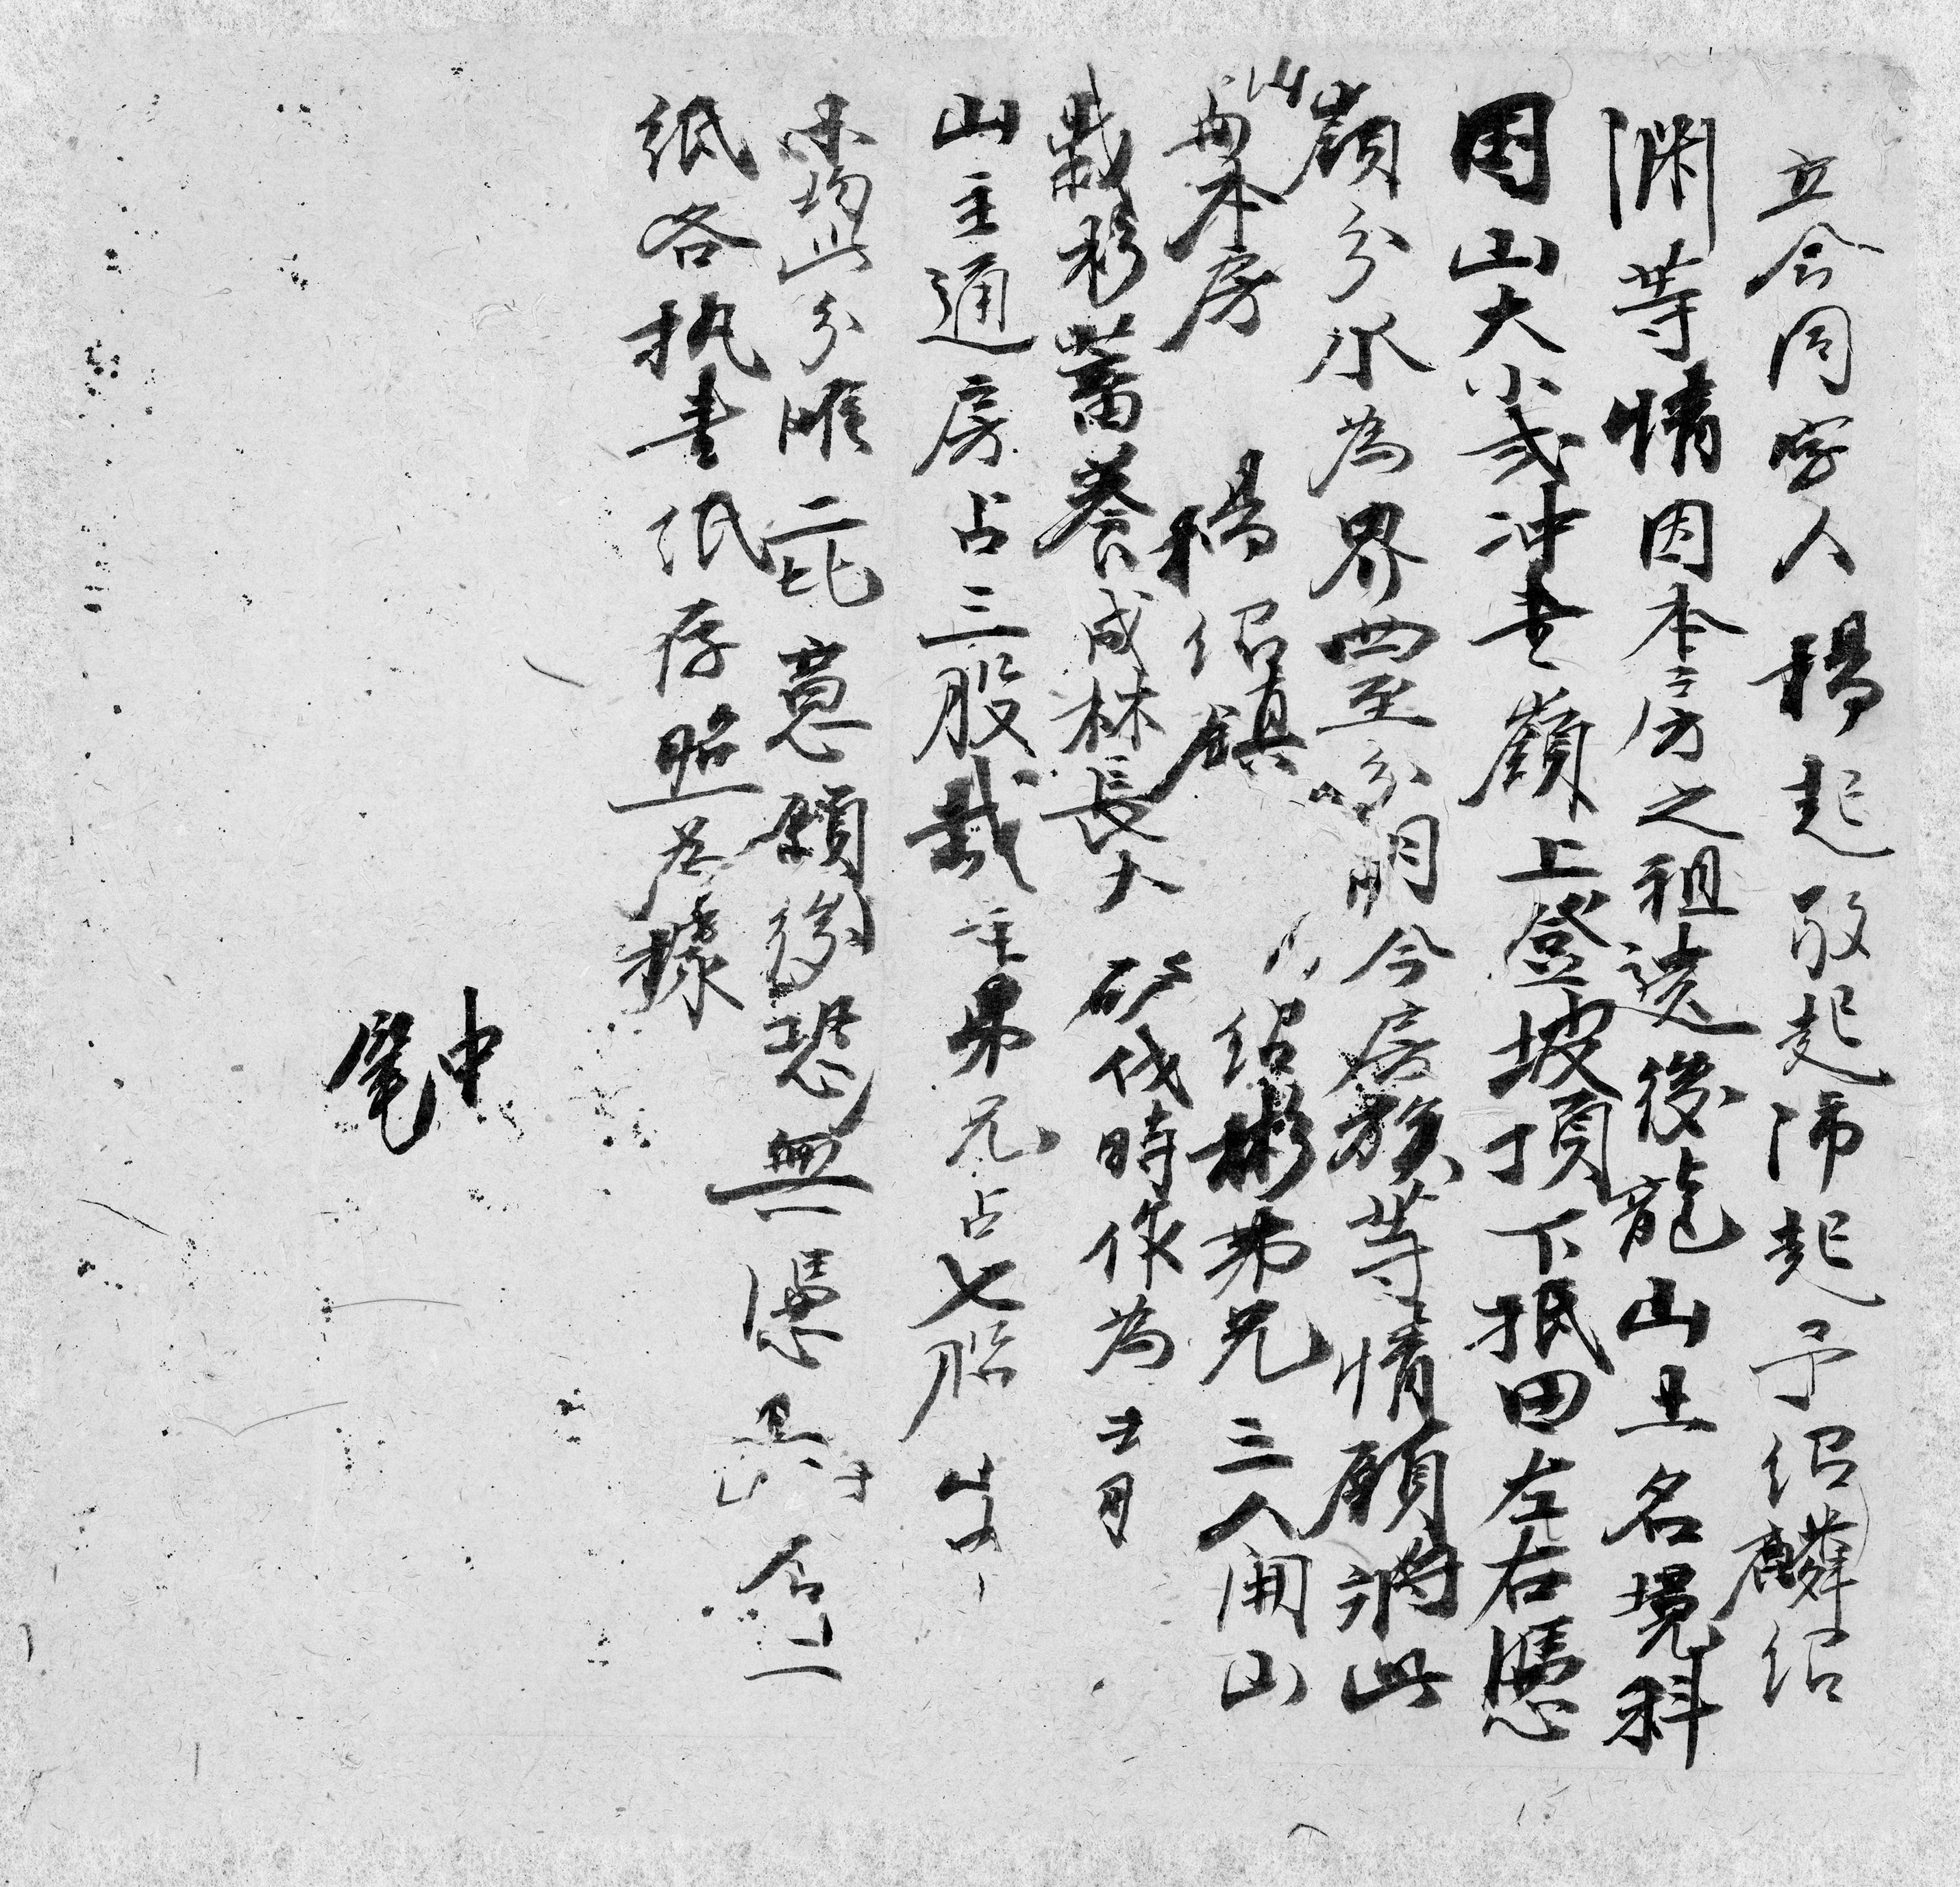 立合同字人楊起敬起沛起予紹麟紹
渊等情因本房之祖遗後龍山土名境料
困山大小弍冲壹嶺上登坡頂下抵田左右憑
嶺分水為界四至分明今房族等情願將此
山與本房楊紹鎮紹彬弟兄三人開山
栽杉蓄養成林長大砍伐時作為十股
山主通房占三股栽主弟兄占七股
均分二比意願後恐無憑合二
紙各执壹纸存照為據